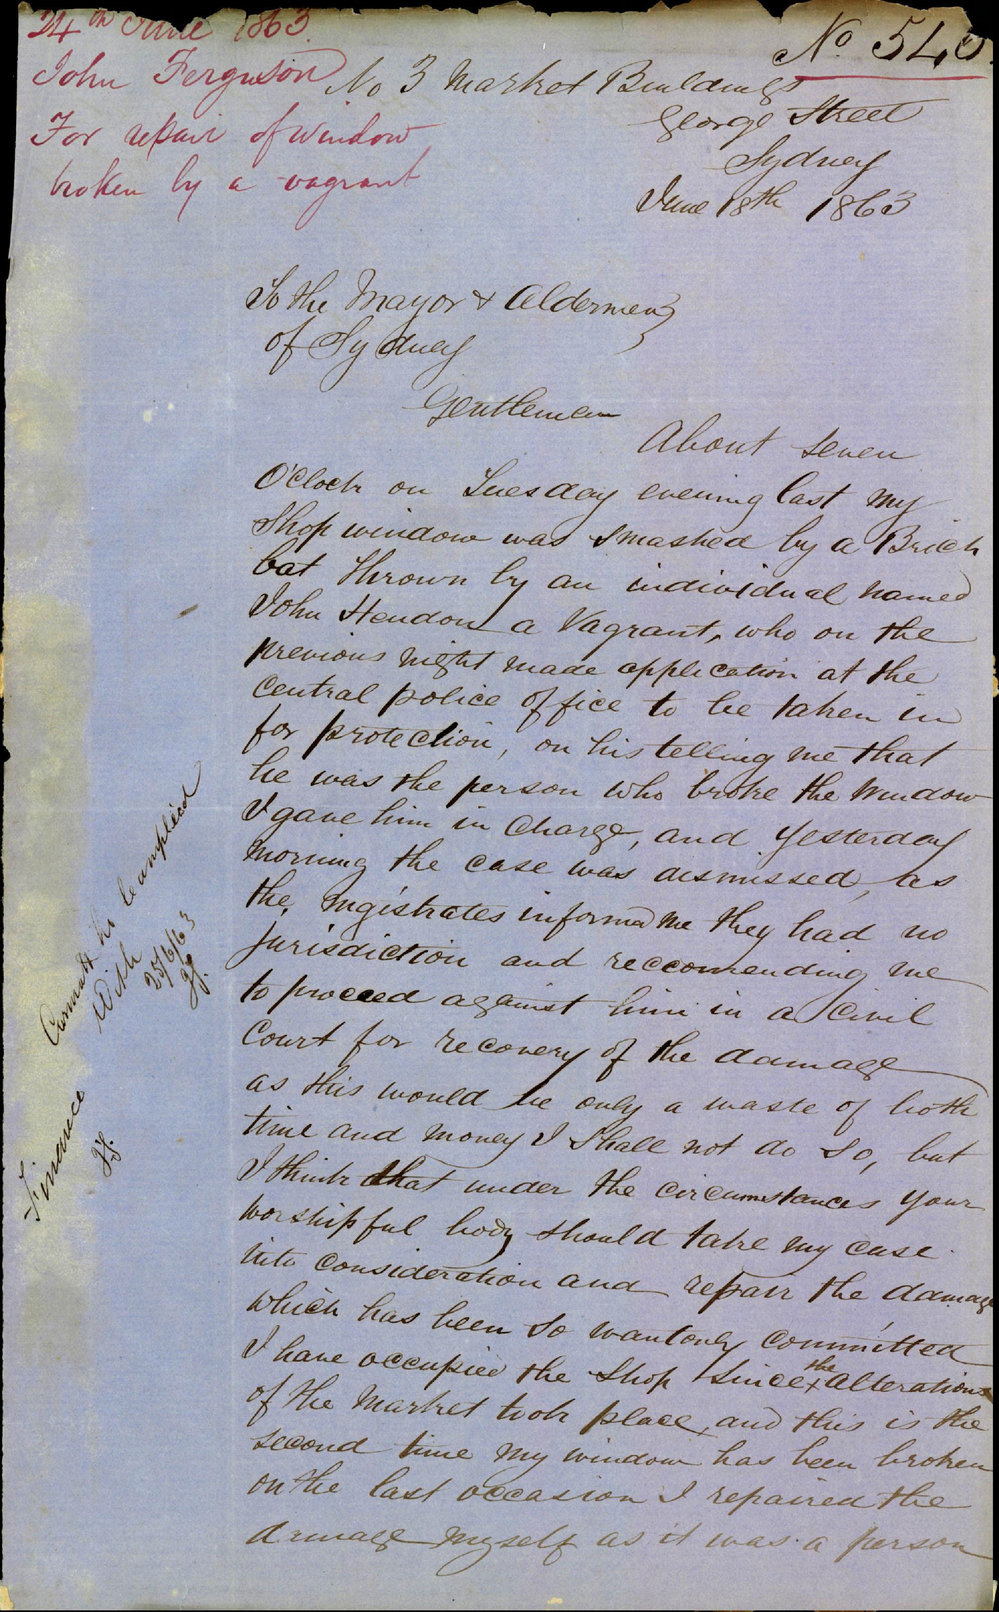 24th June 1863.
John Ferguson
For repair of window
broken by a vagrant
No 540.
No 3 Market Buildings
George Street
Sydney
June 18th 1863
To the Mayor & Aldermen
of Sydney
Gentlemen
About seven
O'Clock on Tuesday evening last my
Shop window was smashed by a Brick
bat thrown by an individual named
John Hendon a Vagrant, who on the
previous night made application at the
Central police office to be taken in
for protection, on his telling me that
he was the person who broke the window
I gave him in Charge, and yesterday
morning the case was dismissed, as
the Magistrates informed me they had no
jurisdiction and reccomending me
to proceed against him in a Civil
Court for recovery of the damage
as this would be only a waste of both
time and money I shall not do so, but
I think that under the circumstances your
worshipful body should take my case
into consideration and repair the damage
which has been so wantonly committed
I have occupied the shop since the alterations
of the Market took place, and this is the
second time my window has been broken
on the last occasion I repaired the
damage myself as it was a person
Finance
Cannot be complied
with
25/6/63